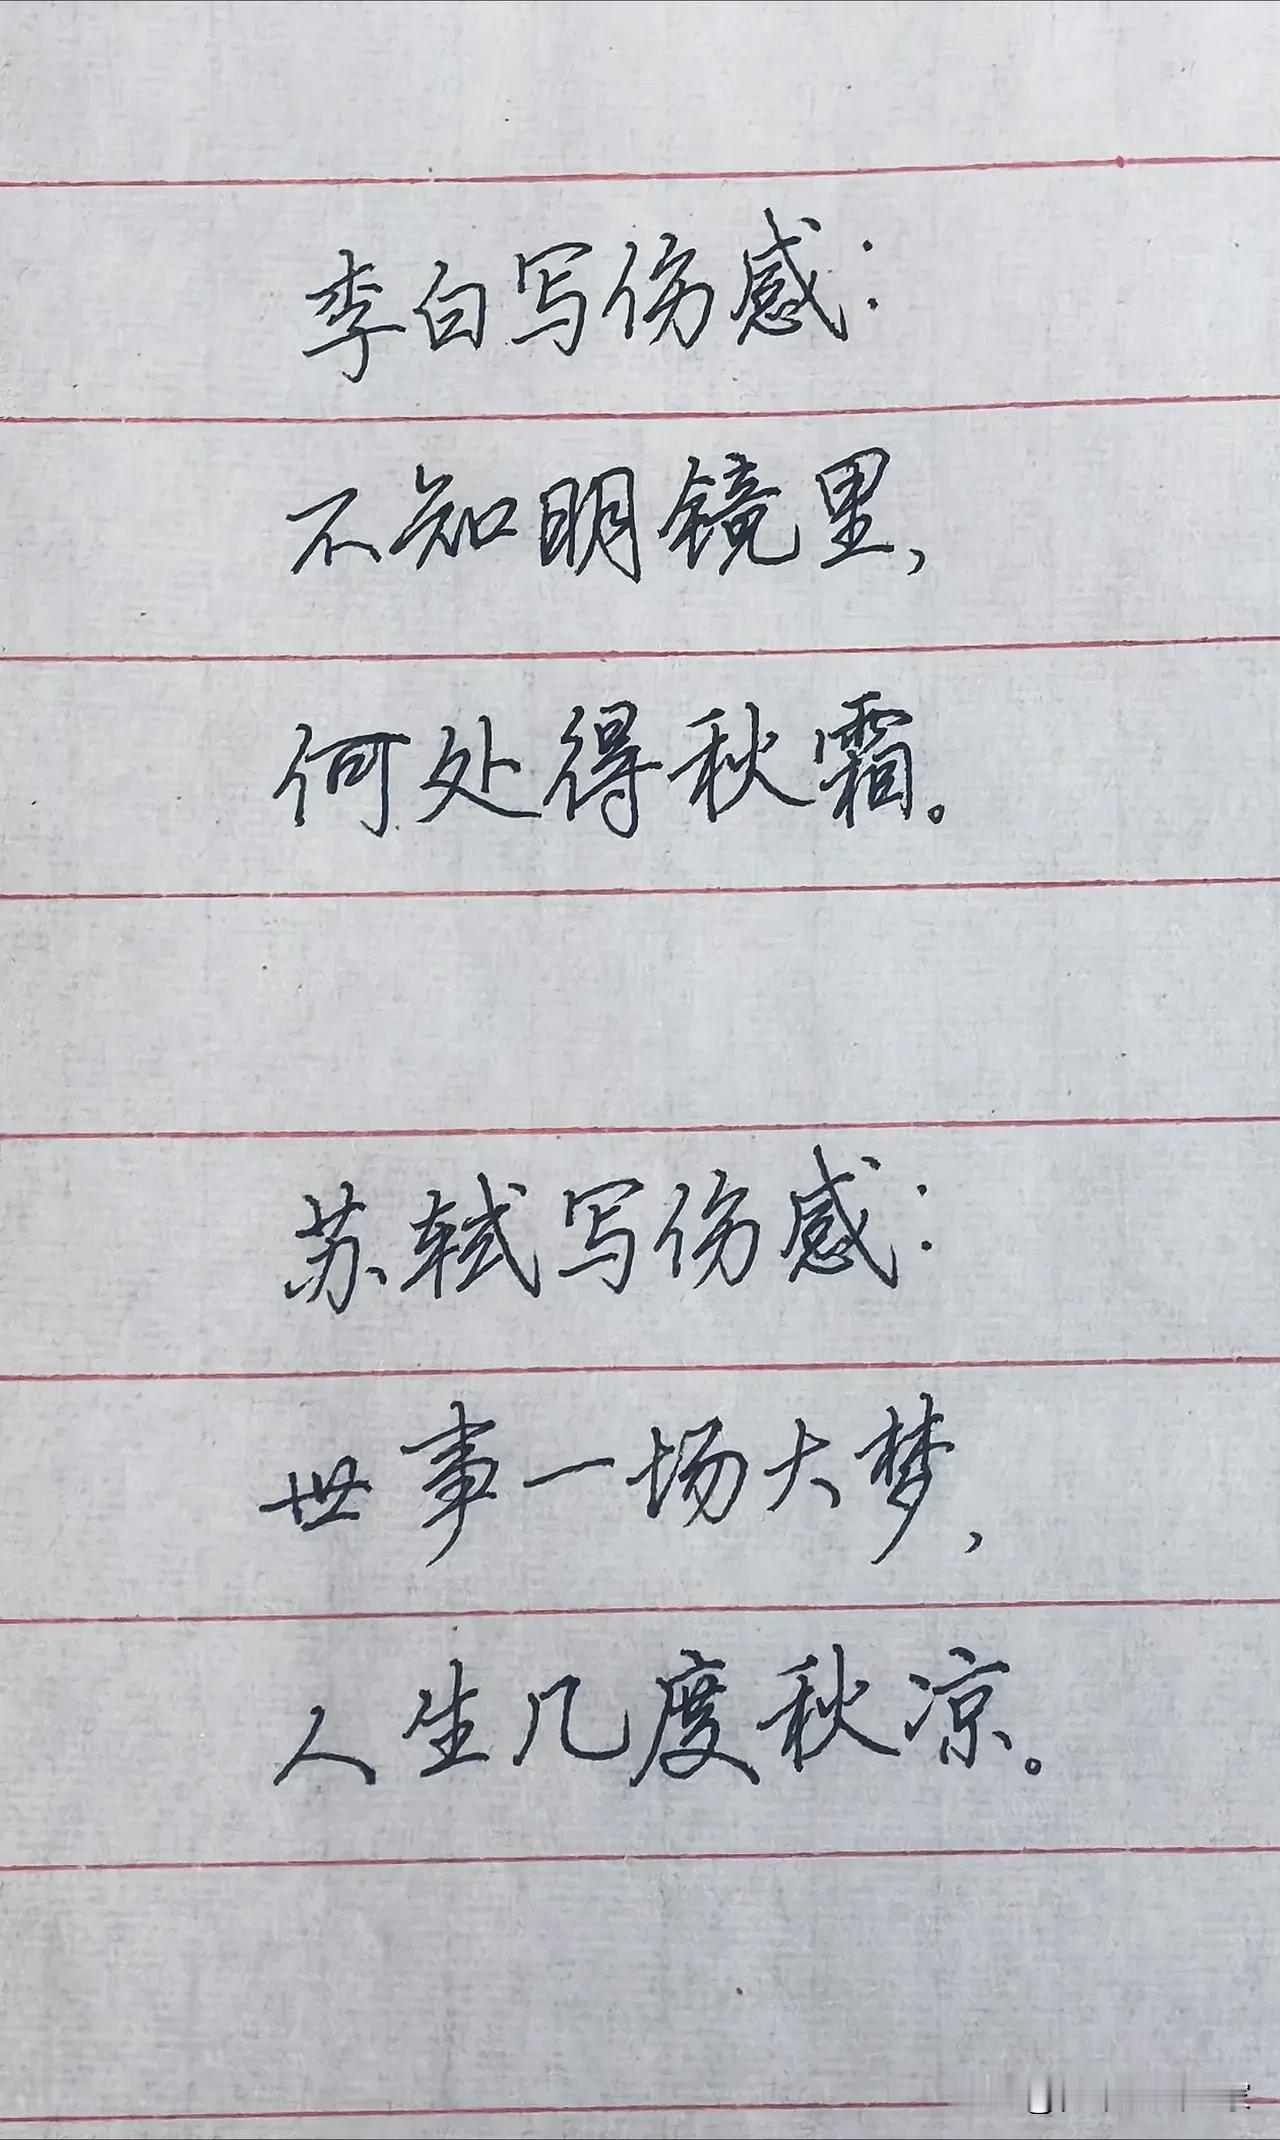 李白写伤感：
不知明镜里，
何处得秋霜。
苏轼写伤感：
世事一场大梦，
人生几度秋凉。